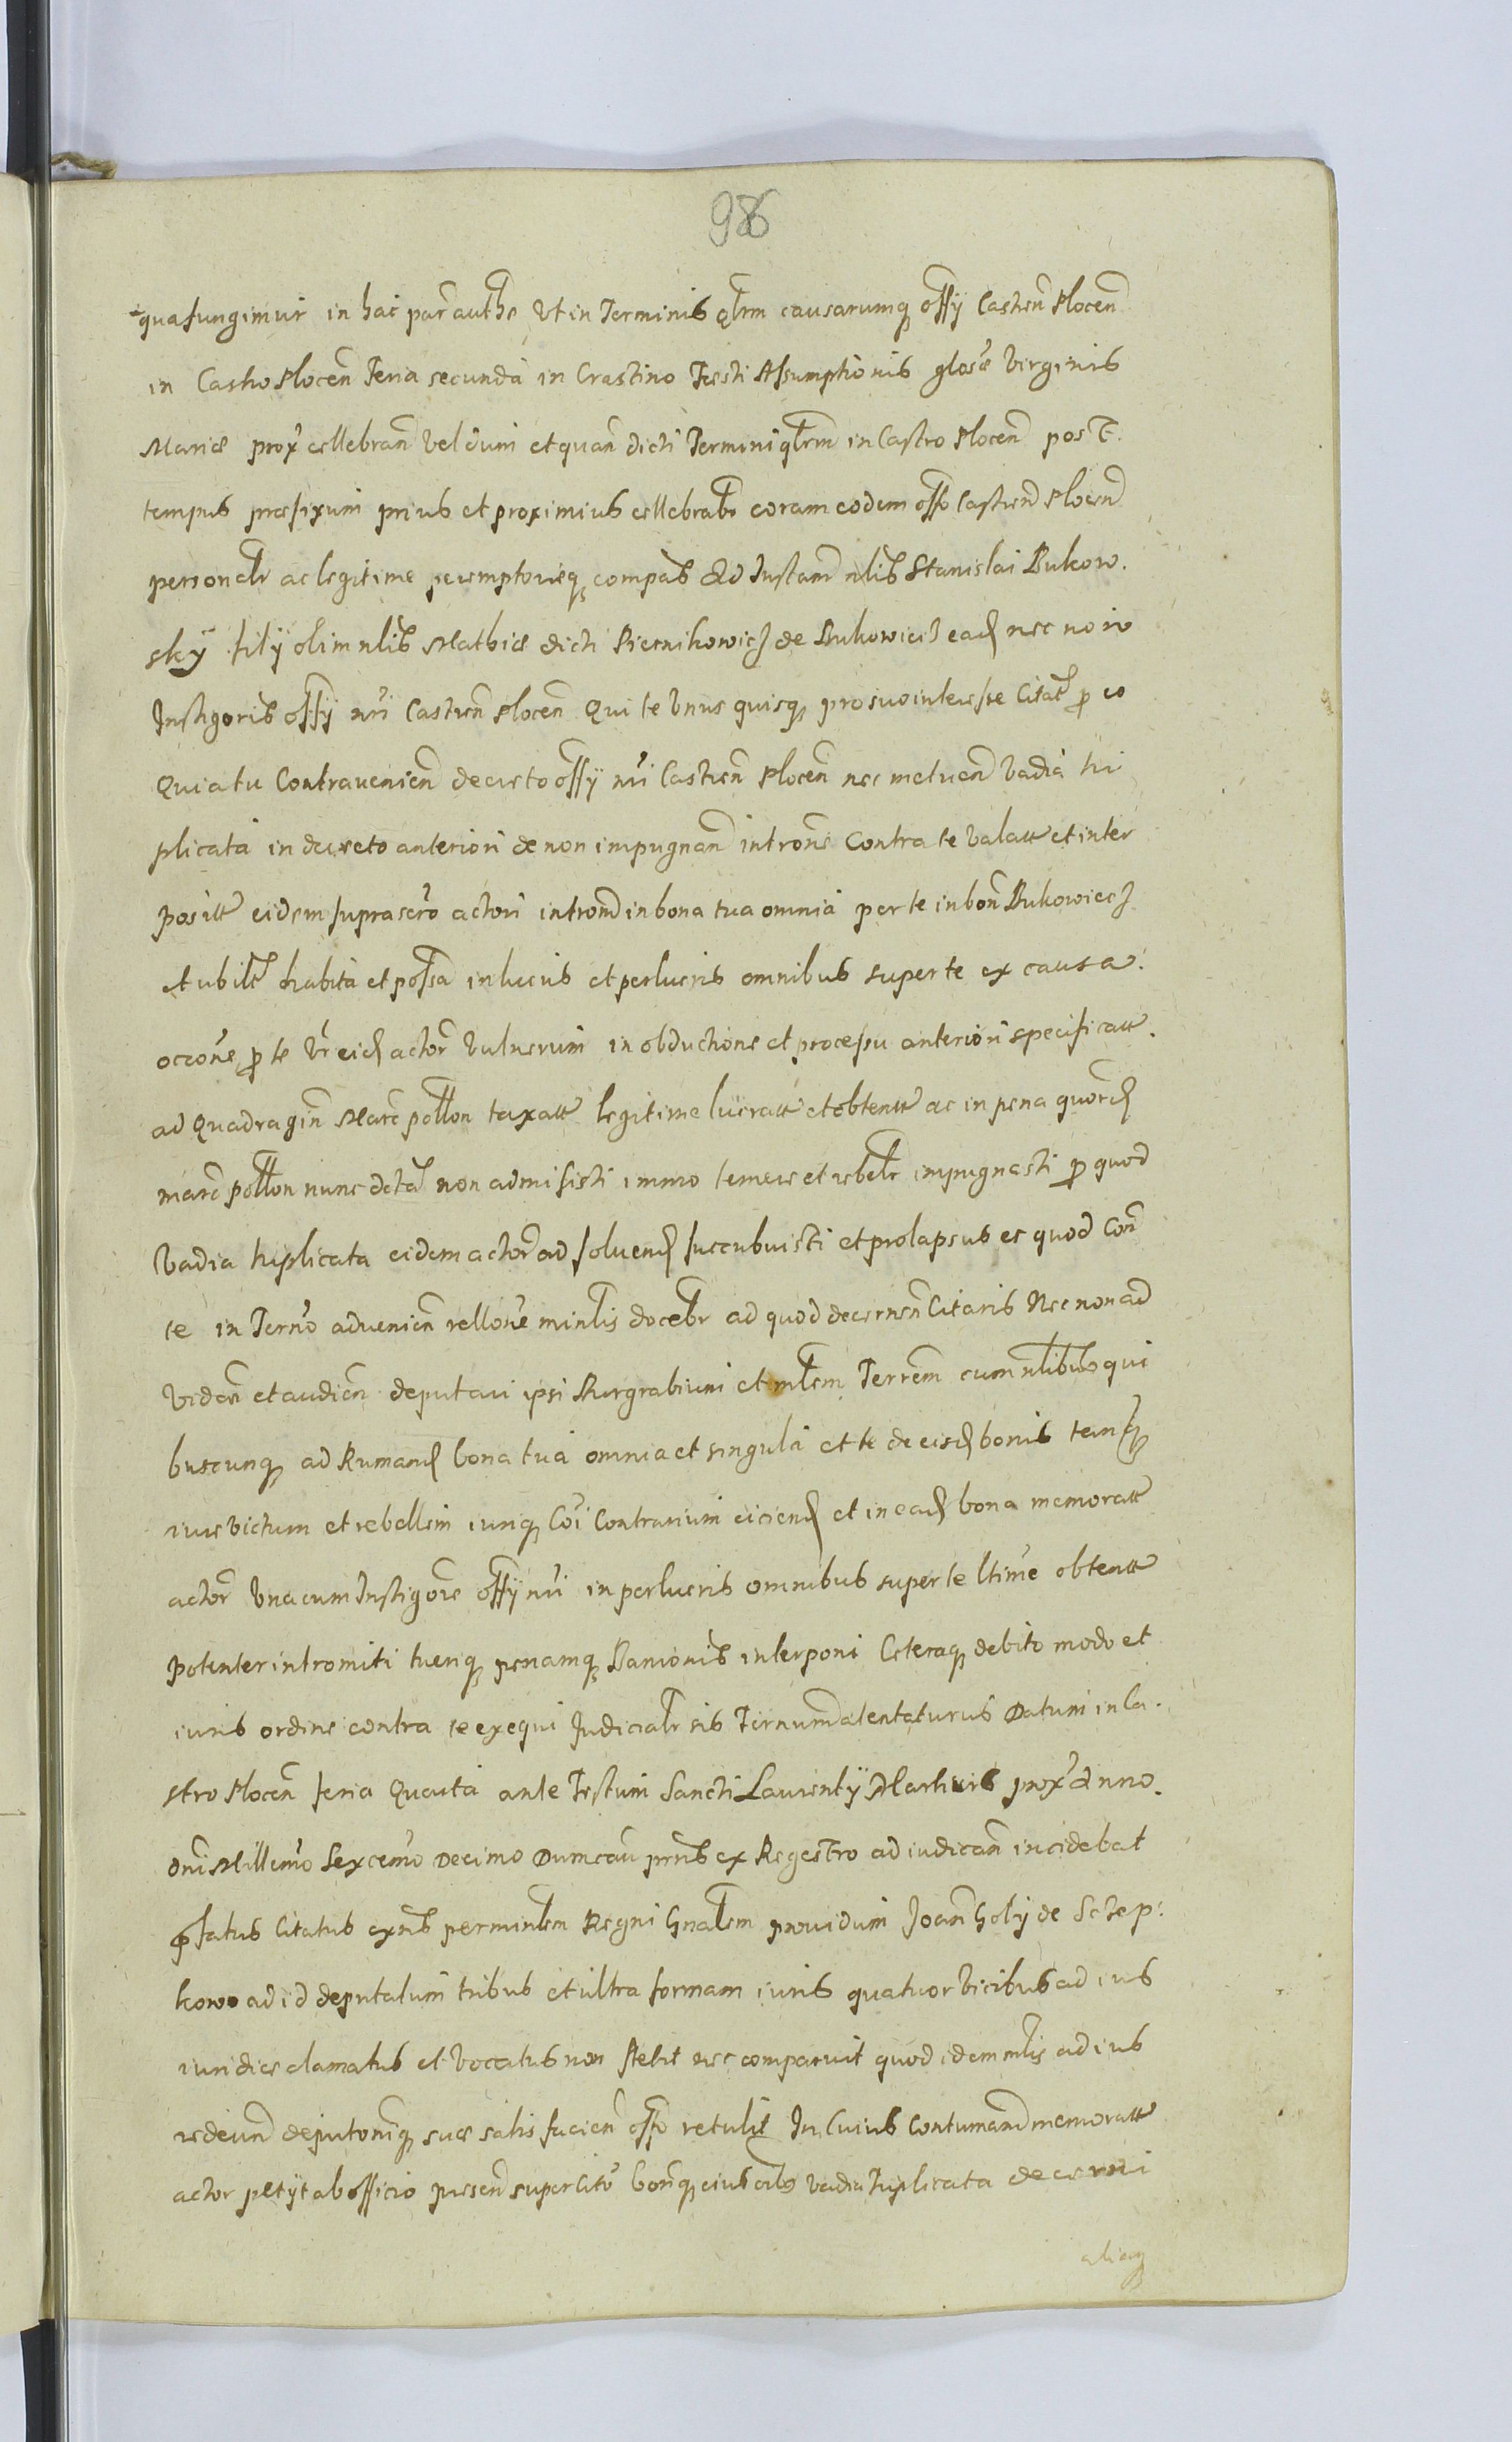 98
qua fungimur in hac par authe Ut in Terminis qlrm causarumq offy Castren Plocen
in Castro Plocen Feria secunda in Crastino Festi Assumptionis glosæ Virginis
Mariæ prox cellebran vel dum et quan dicti Termini qlrm in Castro Plocen post
tempus præfixum prius et proximius cellebrabr coram eodem offo Castren Plocen
personalr ac legitime peremptorieq compas Ad Instam nlis Stanislai Bukow.
sky filÿ olim nlis Mathiæ dicti Piernikowicz de Bukowiecz ead nec no io
Instigoris offy nri Castren Plocen Qui te Unus quisq pro suo interesse Citat p eo
Quia tu Contravenien decreto offÿ nri Castren Plocen nec metuen Vadia tri
plicata in decreto anteriori de non impugnan introne Contra te valatt et inter
positt eidem suprascro actori introm in bona tua omnia per te in bon Bukowiecz
et ubilt habita et possa in lucris et perlucris omnibus super te ex causa.
occone p te Ur eid actor Vulnerum in obductione et processu anteriori specificatt.
ad Quadragin Marc pollon taxatt legitime lucratt et obtentt ac in pena quord
marc pollon nunc dcta non admisisti immo temere et rebelr impugnasti p quod
Vadia triplicata eidem actor ad solvend succubuisti et prolapsus es quod Con
te in Terno advenien rellone minlis docebr ad quod decernen Citaris Nec non ad
Viden et audien deputari ipsi Burgrabium et mlem Terrem cum nlibus qui
buscunq ad Rumand bona tua omnia et singula et te de eisd bonis tanq
iure victum et rebellem iurq Coi Contrarium eiciend et in ead bona memoratt
actor Una cum Instigore offÿ nri in perlucris omnibus super te ltime obtentt
potenter intromiti tueriq penamq Banionis interponi Ceteraq debito modo et
iuris ordine contra te exequi Judicialr sis Ternum atentaturus Datum in Ca.
stro Plocen feria Quarta ante Festum Sancti Laurentÿ Martiris prox Anno.
Dni Millemo Sexcemo Decimo Dum cau prns ex Regestro ad iudican incidebat
pfatus Citatus exns per minlem Regni Gnalem providum Joan Goly de Sczep:
kowo ad id deputatum tribus et ultra formam iuris quatuor vicibus ad ius
iuridice clamatus et vocatus non stetit nec comparuit quod idem mlis ad ius
redeund deputoniq suæ satis facien offo retulit In Cuius Contumam memoratt
actor petÿt ab officio presen super Cito bonq eius oibs vadia Triplicata decerni
aliaq